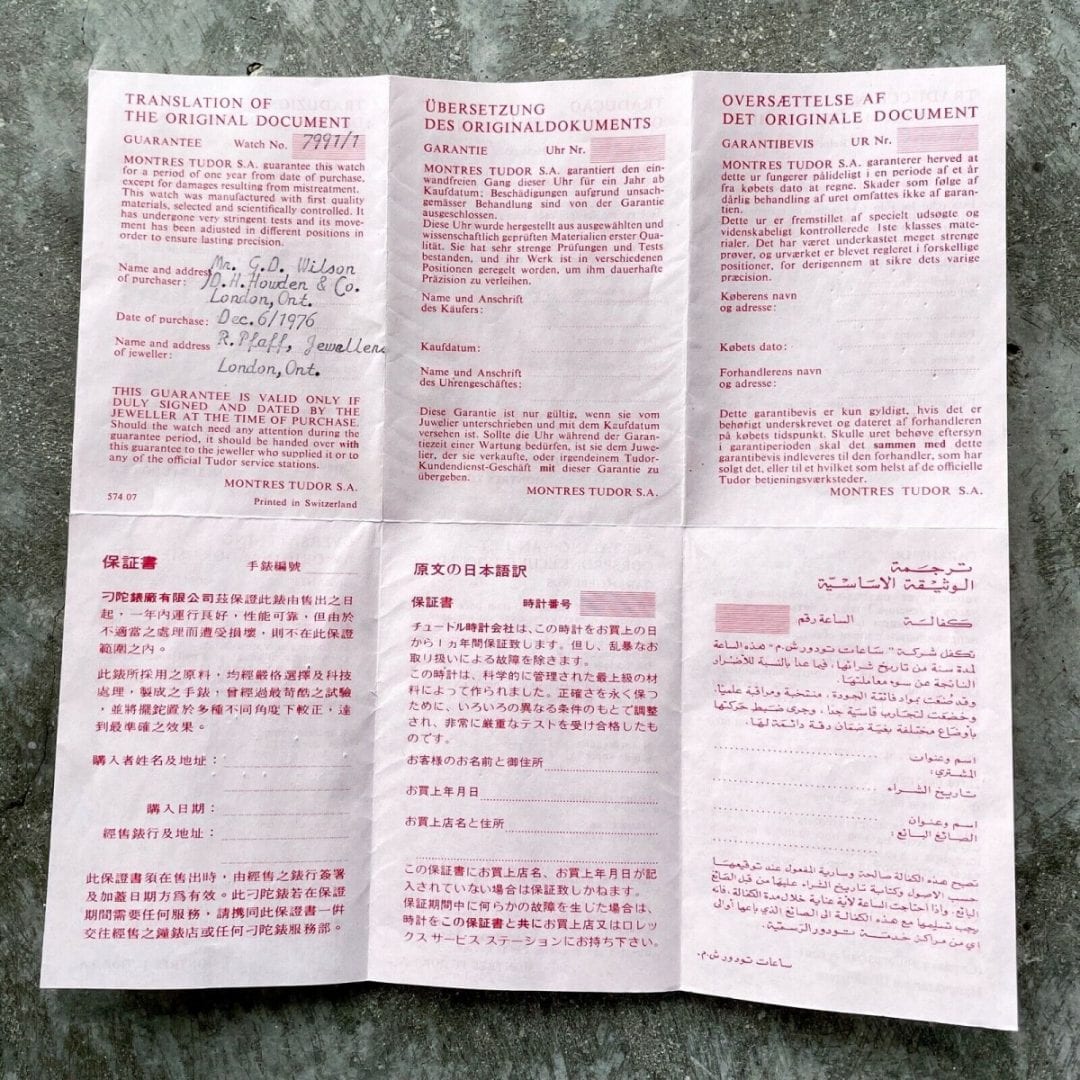 TRANSLATION OF
THE ORIGINAL DOCUMENT
GUARANTEE Watch No. 7991/1
MONTRES TUDOR S.A. guarantee this watch
for a period of one year from date of purchase,
except for damages resulting from mistreatment.
This watch was manufactured with first quality
materials, selected and scientifically controlled. It
has undergone very stringent tests and its move-
ment has been adjusted in different positions in
order to ensure lasting precision.
Name and address Mr. G.D. Wilson
of purchaser: D.H. Howden & Co.
London, Ont.
Date of purchase: Dec. 6/1976
Name and address R. Pfaff, Jewellers
of jeweller:
London, Ont.
THIS GUARANTEE IS VALID ONLY IF
DULY SIGNED AND DATED BY THE
JEWELLER AT THE TIME OF PURCHASE.
Should the watch need any attention during the
guarantee period, it should be handed over with
this guarantee to the jeweller who supplied it or to
any of the official Tudor service stations.
MONTRES TUDOR S.A.
574 07 Printed in Switzerland
ÜBERSETZUNG
DES ORIGINALDOKUMENTS
GARANTIE Uhr Nr.
MONTRES TUDOR S.A. garantiert den ein-
wandfreien Gang dieser Uhr für ein Jahr ab
Kaufdatum; Beschädigungen aufgrund unsach-
gemässer Behandlung sind von der Garantie
ausgeschlossen.
Diese Uhr wurde hergestellt aus ausgewählten und
wissenschaftlich geprüften Materialien erster Qua-
lität. Sie hat sehr strenge Prüfungen und Tests
bestanden, und ihr Werk ist in verschiedenen
Positionen geregelt worden, um ihm dauerhafte
Präzision zu verleihen.
Name und Anschrift
des Käufers:
Kaufdatum:
Name und Anschrift
des Uhrengeschäftes:
Diese Garantie ist nur gültig, wenn sie vom
Juwelier unterschrieben und mit dem Kaufdatum
versehen ist. Sollte die Uhr während der Garan-
tiezeit einer Wartung bedürfen, ist sie dem Juwe-
lier, der sie verkaufte, oder irgendeinem Tudor-
Kundendienst-Geschäft mit dieser Garantie zu
übergeben.
MONTRES TUDOR S.A.
OVERSÆTTELSE AF
DET ORIGINALE DOCUMENT
GARANTIBEVIS UR Nr.
MONTRES TUDOR S.A. garanterer herved at
dette ur fungerer pålideligt i en periode af et år
fra købets dato at regne. Skader som følge af
dårlig behandling af uret omfattes ikke af garan-
tien.
Dette ur er fremstillet af specielt udsøgte og
videnskabeligt kontrollerede 1ste klasses mate-
rialer. Det har været underkastet meget strenge
prøver, og urværket er blevet regleret i forskellige
positioner, for derigennem at sikre dets varige
præcision.
Køberens navn
og adresse:
Købets dato:
Forhandlerens navn
og adresse:
Dette garantibevis er kun gyldigt, hvis det er
behørigt underskrevet og dateret af forhandleren
på købets tidspunkt. Skulle uret behøve eftersyn
i garantiperioden skal det sammen med dette
garantibevis indleveres til den forhandler, som har
solgt det, eller til et hvilket som helst af de officielle
Tudor betjeningsværksteder.
MONTRES TUDOR S.A.
保証書 手錶編號
刁陀錶廠有限公司茲保證此錶由售出之日
起，一年內運行良好，性能可靠，但由於
不適當之處理而遭受損壞，則不在此保證
範圍之內。
此錶所採用之原料，均經嚴格選擇及科技
處理，製成之手錶，曾經過最苛酷之試驗
，並將擺鉈置於多種不同角度下較正，達
到最準確之效果。
購入者姓名及地址：
購入日期：
經售錶行及地址：
此保證書須在售出時，由經售之錶行簽署
及加蓋日期方為有效。此刁陀錶若在保證
期間需要任何服務，請携同此保證書一併
交往經售之鐘錶店或任何刁陀錶服務部。
原文の日本語訳
保証書 時計番号
チュードル時計会社は、この時計をお買上の日
から1ヵ年間保証致します。但し、乱暴なお
取り扱いによる故障を除きます。
この時計は、科学的に管理された最上級の材
料によって作られました。正確さを永く保つ
ために、いろいろの異なる条件のもとで調整
され、非常に厳重なテストを受け合格したも
のです。
お客様のお名前と御住所
お買上年月日
お買上店名と住所
この保証書にお買上店名、お買上年月日が記
入されていない場合は保証致しかねます。
保証期間中に何らかの故障を生じた場合は、
時計をこの保証書と共にお買上店又はロレッ
クス サービス ステーションにお持ち下さい。
ترجمة
الوثيقة الاساسية
كفالة الساعة رقم
تكفل شركة "ساعات تودور ش.م" هذه الساعة
لمدة سنة من تاريخ شرائها، فيما عدا بالنسبة للأضرار
الناتجة عن سوء معاملتها.
وقد صُنعت بمواد فائقة الجودة، منتخبة ومراقبة علمياً،
وخضعت لتجارب قاسية جداً، وجرى ضبط حركتها
بأوضاع مختلفة بغية ضمان دقة دائمة لها.
اسم وعنوان
المشتري:
تاريخ الشراء
اسم وعنوان
الصائغ البائع:
تصبح هذه الكفالة صالحة وسارية المفعول عند توقيعها
حسب الاصول وكتابة تاريخ الشراء عليها من قبل الصائغ
البائع. وإذا احتاجت الساعة لأية عناية خلال مدة الكفالة، فإنه
يجب تسليمها مع هذه الكفالة الى الصائغ الذي باعها أو الى
اي من مراكز خدمة تودور الرسمية.
ساعات تودور ش.م.